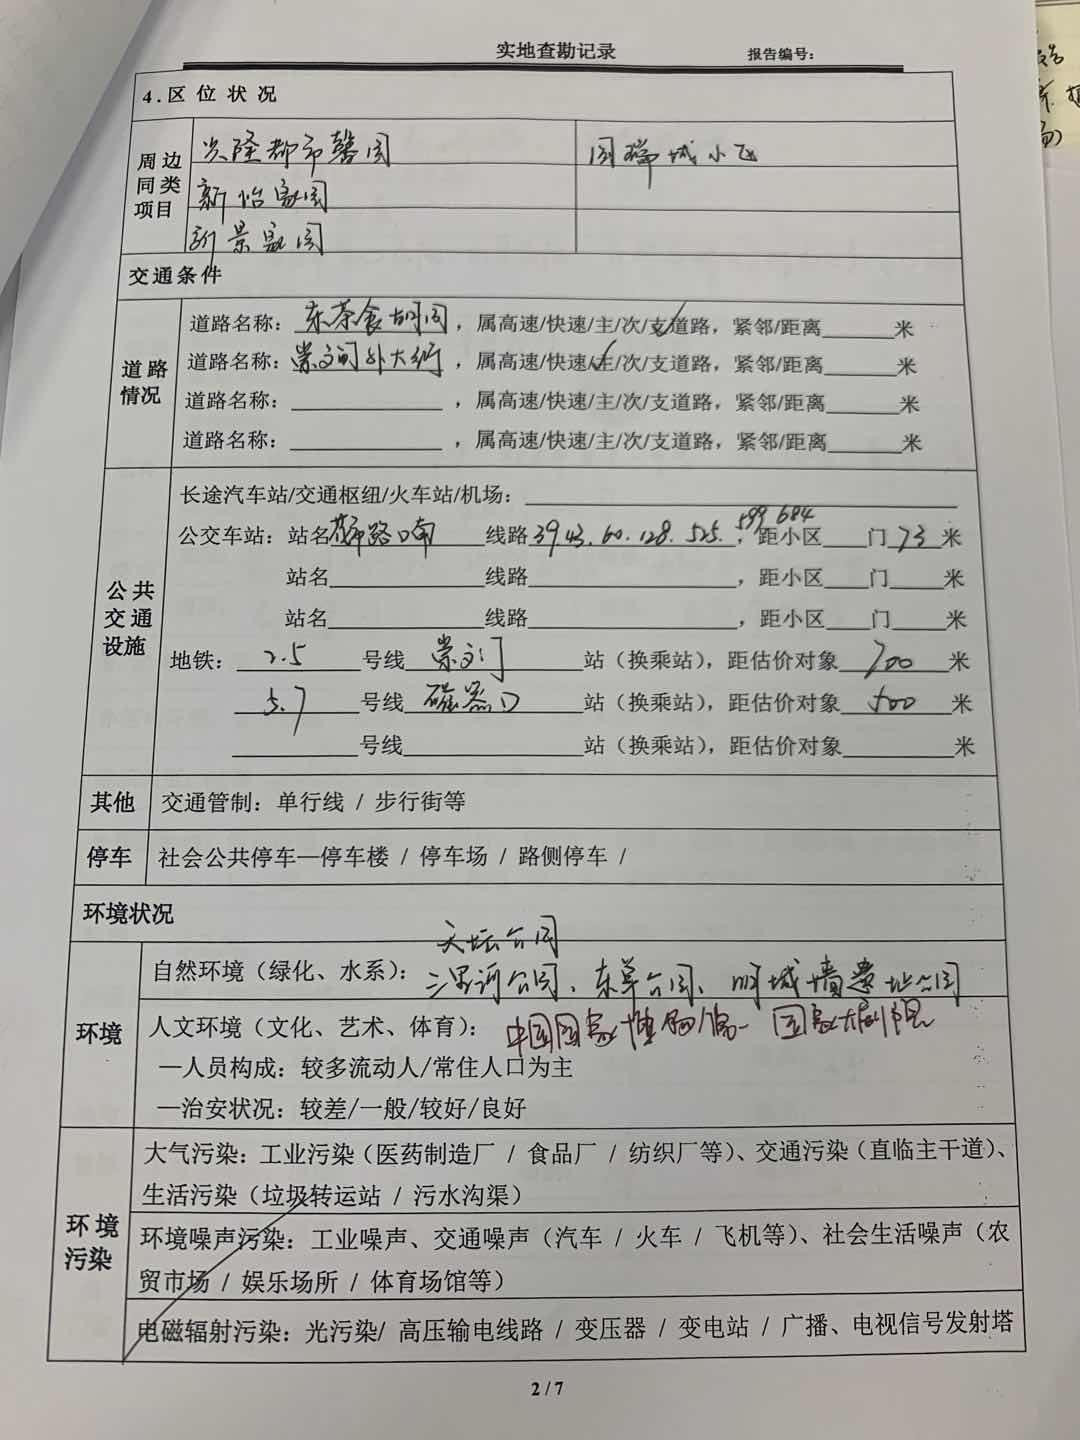 实地查勘记录 报告编号：
4.区 位 状 况
周边同类项目
兴隆都市馨园 国瑞城小区
新怡家园
新景家园
交通条件
道路情况
道路名称：东茶食胡同，属高速/快速/主/次/支道路，紧邻/距离______米
道路名称：崇文门外大街，属高速/快速/主/次/支道路，紧邻/距离______米
道路名称：____________，属高速/快速/主/次/支道路，紧邻/距离______米
道路名称：____________，属高速/快速/主/次/支道路，紧邻/距离______米
公共交通设施
长途汽车站/交通枢纽/火车站/机场：____________
公交车站：站名 线路39.43.60.128.525.599.684，距小区____门73米
站名____________线路____________，距小区____门____米
站名____________线路____________，距小区____门____米
地铁：2.5号线崇文门站（换乘站），距估价对象700米
5.7号线磁器口站（换乘站），距估价对象500米
______号线____________站（换乘站），距估价对象______米
其他 交通管制：单行线 / 步行街等
停车 社会公共停车—停车楼 / 停车场 / 路侧停车 /
环境状况
天坛公园
环境
自然环境（绿化、水系）：三里河公园、东草公园、明城墙遗址公园
人文环境（文化、艺术、体育）：中国国家博物馆、国家大剧院
—人员构成：较多流动人/常住人口为主
—治安状况：较差/一般/较好/良好
环境污染
大气污染：工业污染（医药制造厂 / 食品厂 / 纺织厂等）、交通污染（直临主干道）、
生活污染（垃圾转运站 / 污水沟渠）
环境噪声污染：工业噪声、交通噪声（汽车 / 火车 / 飞机等）、社会生活噪声（农
贸市场 / 娱乐场所 / 体育场馆等）
电磁辐射污染：光污染/ 高压输电线路 / 变压器 / 变电站 / 广播、电视信号发射塔
2 / 7